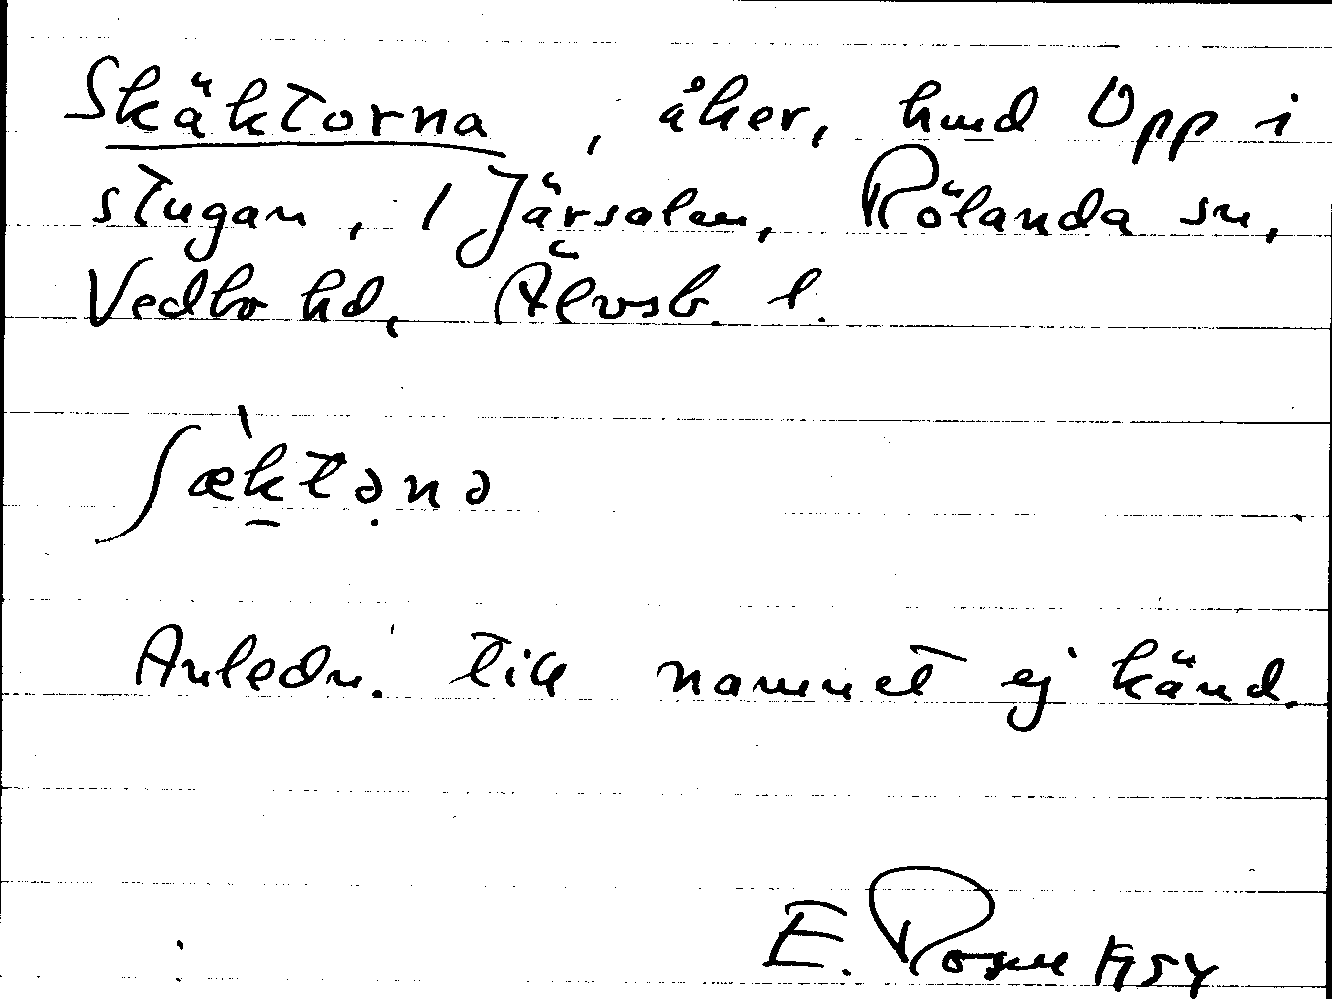 Skäktorna, åker, hmd Opp i
stugan, 1 Järsalen, Rölanda sn,
Vedbo hd, Älvsb. l.
ʃæktənə
Anledn. till namnet ej känd.
E. Rosell 1954